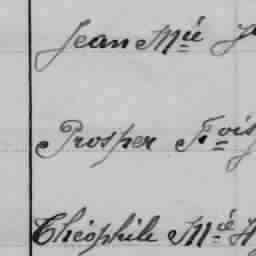 Jean Mie
Prosper Fois
Théophile Mie